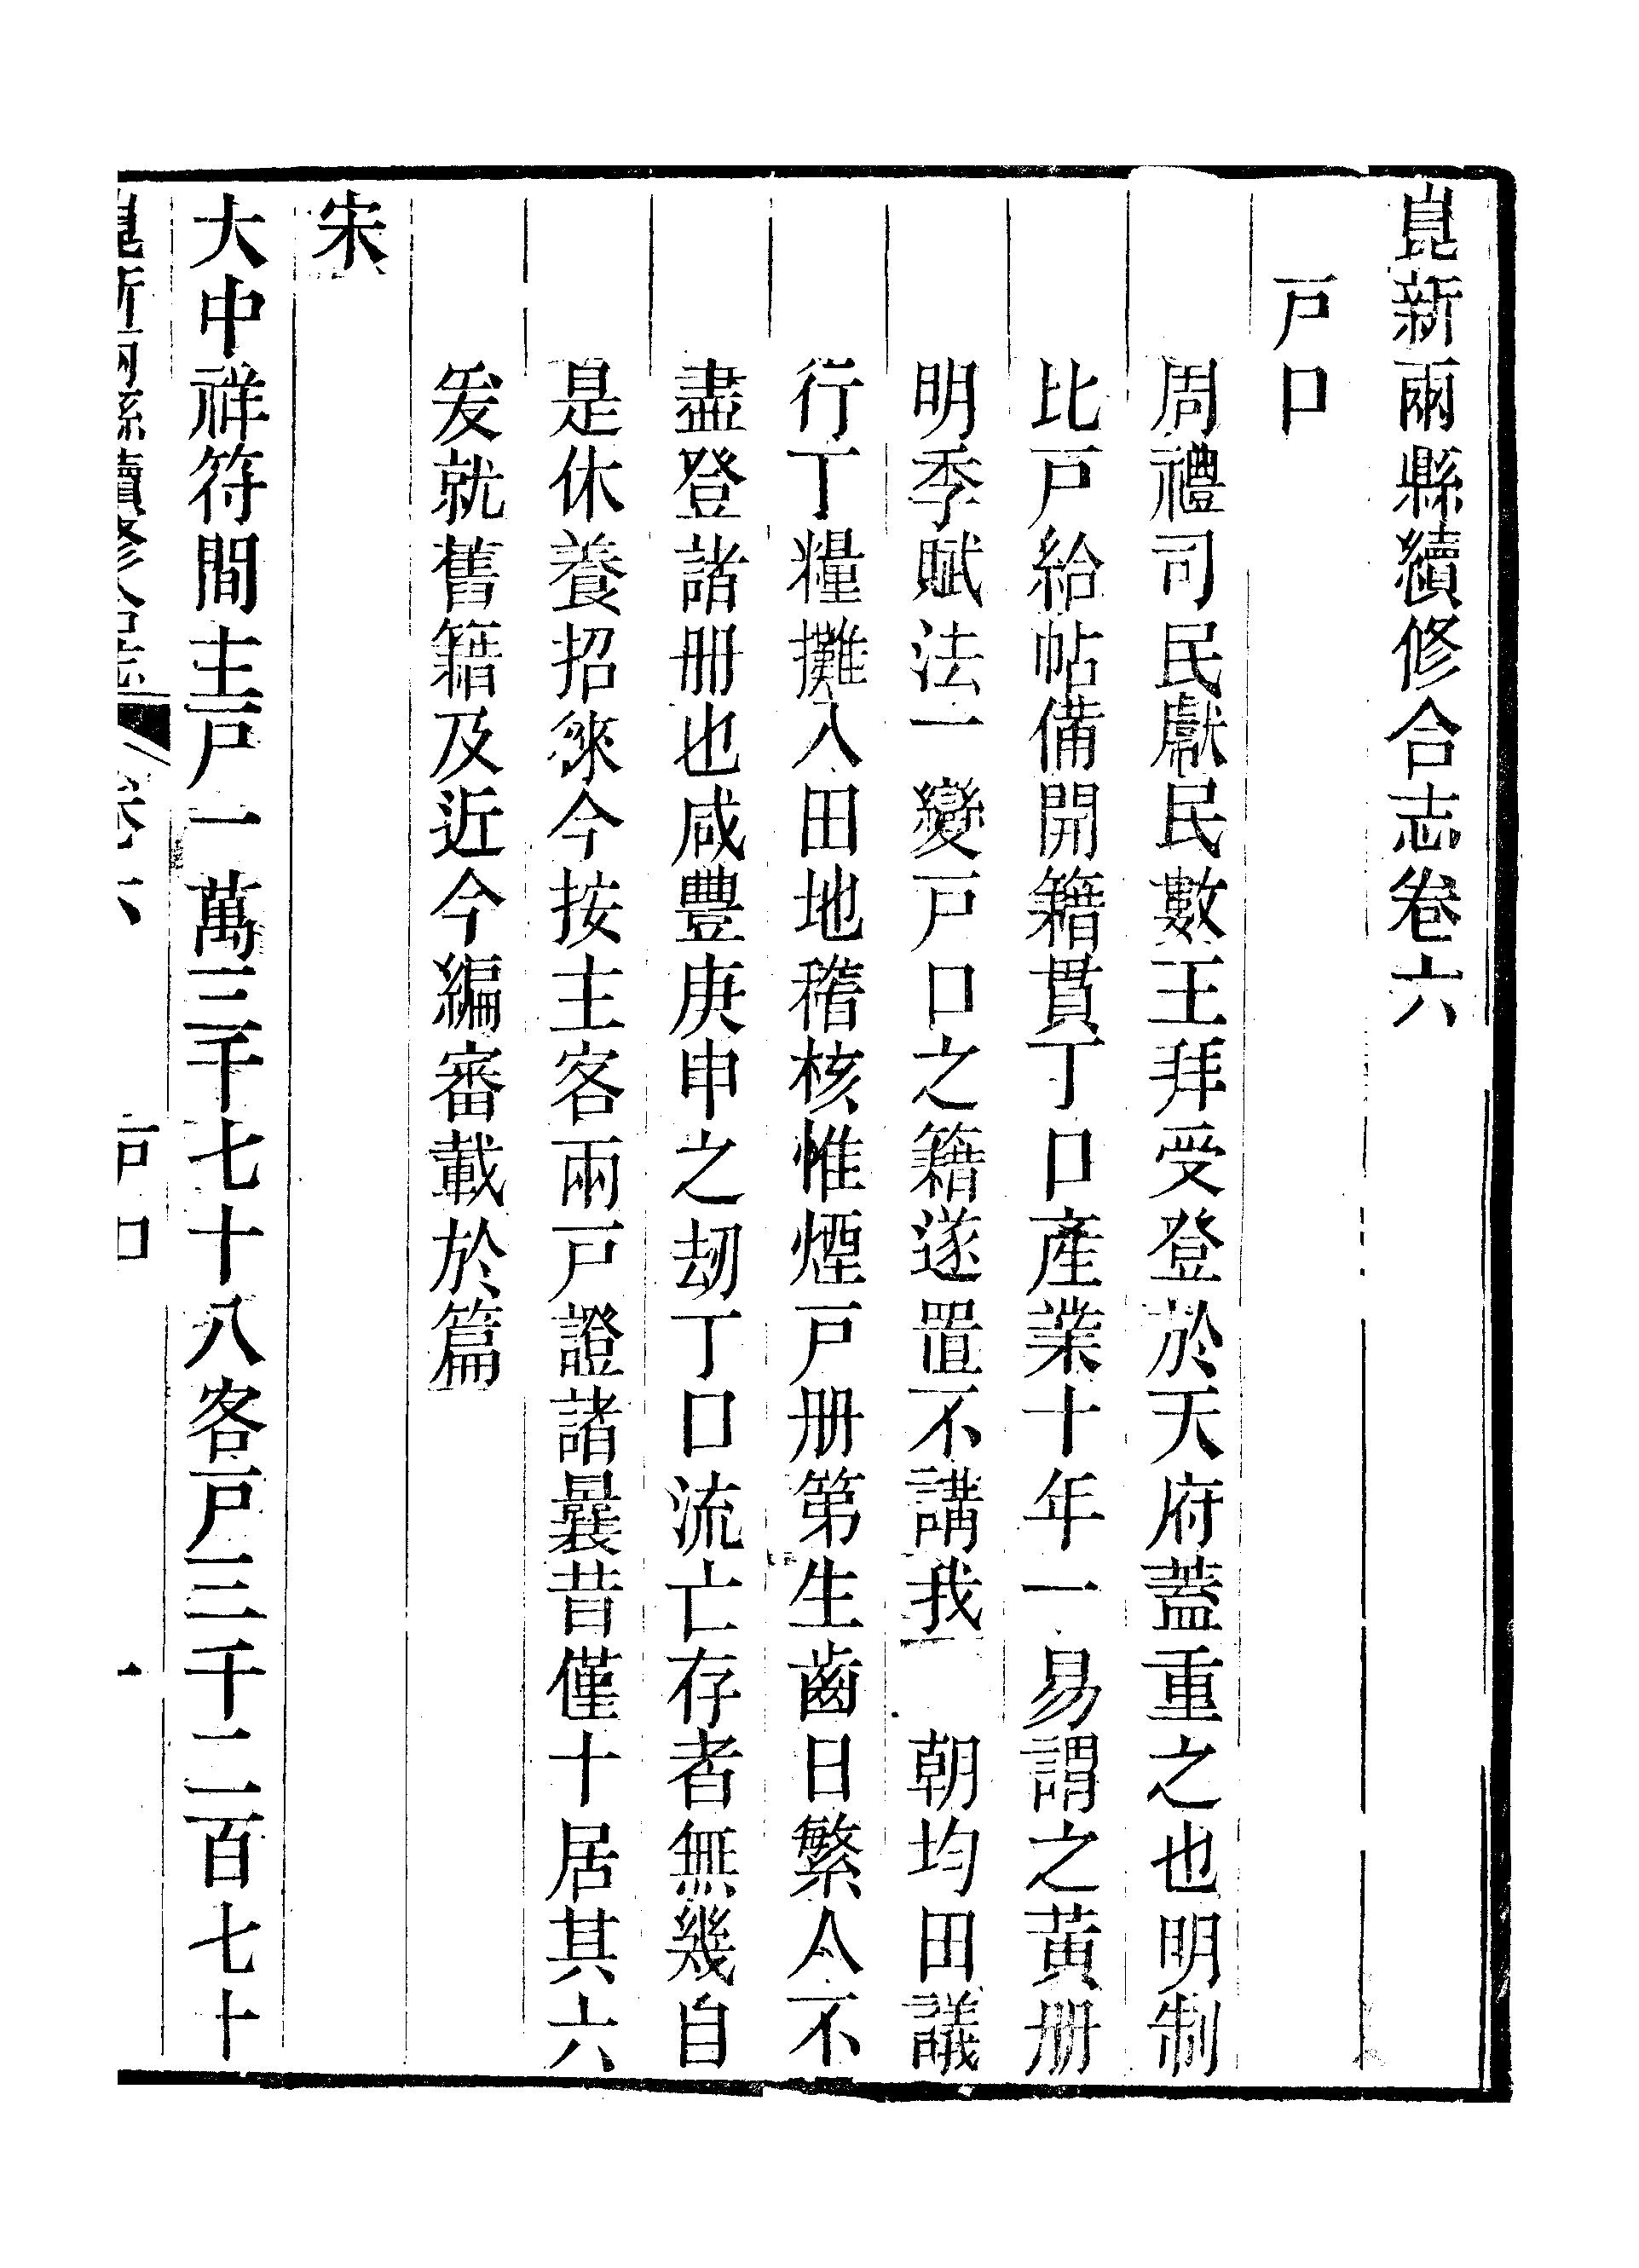 崑新兩縣續修合志卷六
戸口
周禮司民獻民數王拜受登於天府蓋重之也明制
比戸給帖備開籍貫丁口產業十年一易謂之黃册
明季賦法一變戸口之籍遂置不講我　朝均田議
行丁糧攤入田地稽核惟煙戸册第生齒日繁人不
盡登諸册也咸豐庚申之刼丁口流亡存者無幾自
是休養招徠今按主客兩戸證諸曩昔僅十居其六
爰就舊籍及近今編審載於篇
宋
大中祥符間主戸一萬三千七十八客戸三千二百七十
崑新兩縣續修合志　卷六　戸口　一